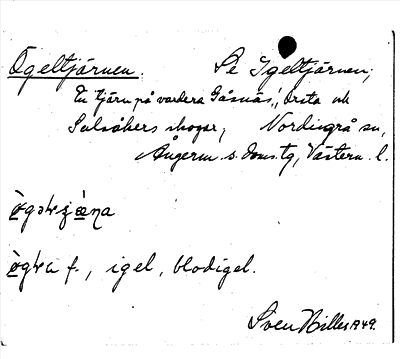 Ögeltjärnen. Se Igeltjärnen;
En tjärn på vardera Gåsnäs', Orsta och
Salsåkers skogar, Nordingrå sn,
Ångerm s. doms.tg, Västern. l.
ògəƚ
ògƚa f., igel, blodigel.
Sven Hiller 1949.